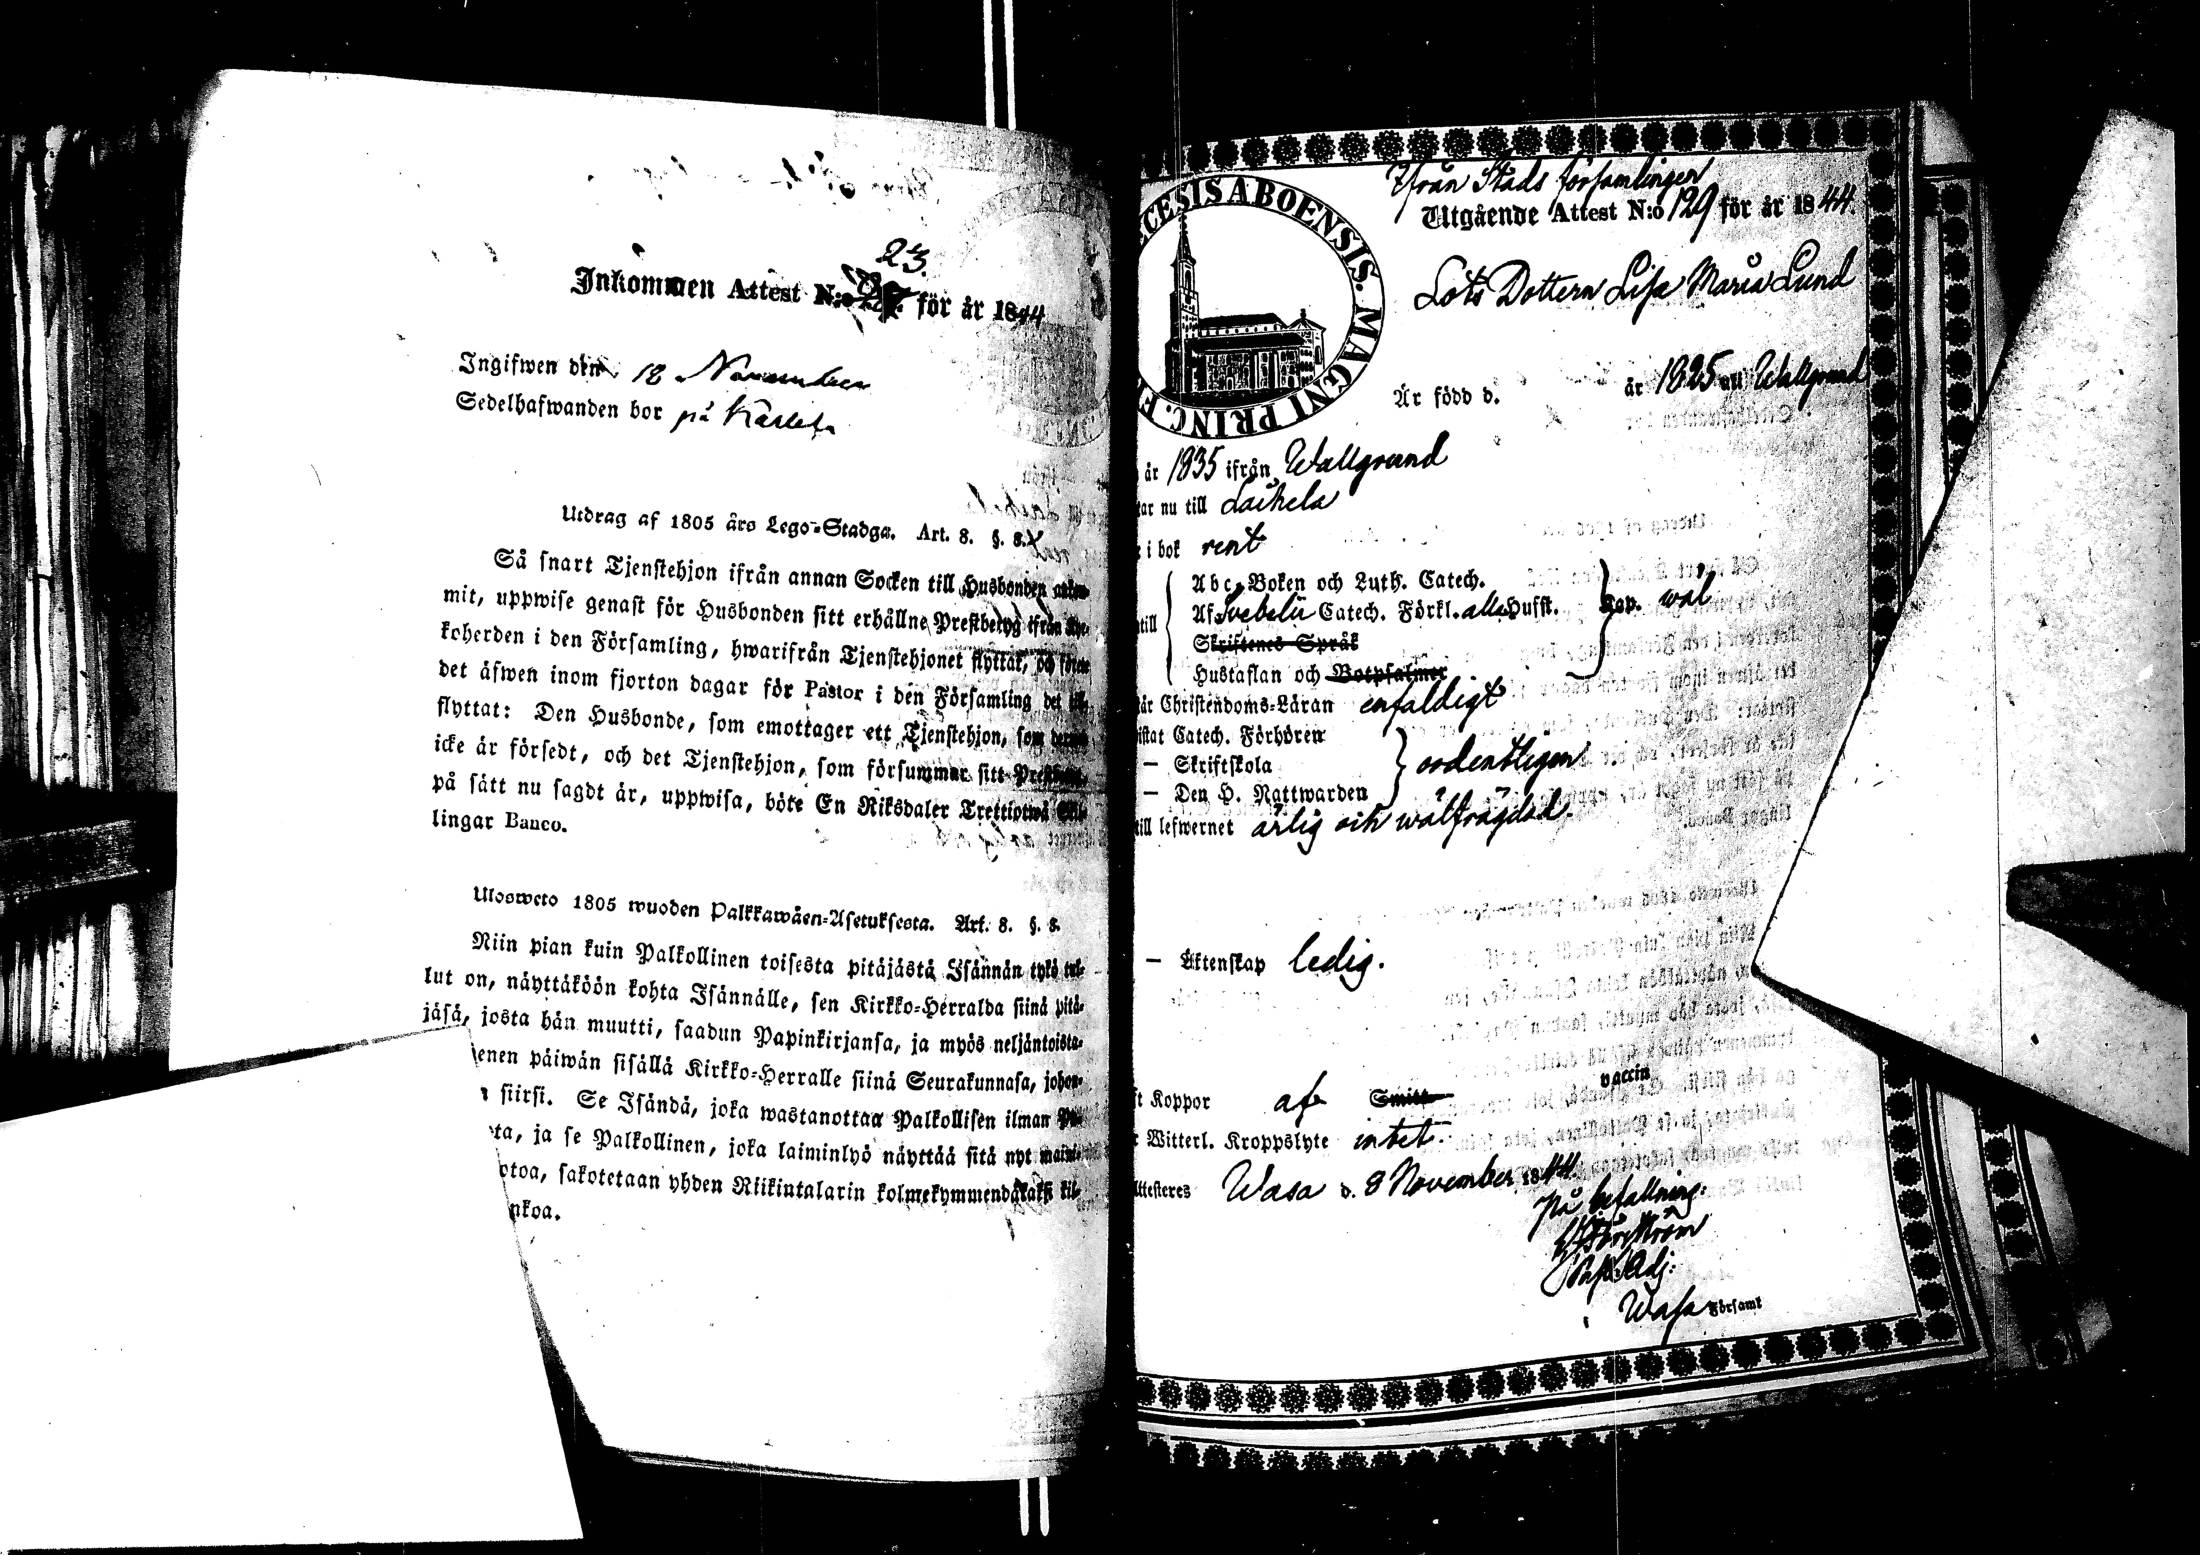 23.
Inkommen Attest N:o för år 1844
Ingifwen den 12 November
Sedelhafwanden bor på
Utdrag af 1805 års Lego-Stadga. Art. 8. §. 8.
Så snart Tjenstehjon ifrån annan Socken till Husbonden
mit, uppwise genast för Husbonden sitt erhållne Prestbetyg ifrån
koherden i den Församling, hwarifrån Tjenstehjonet flyttat, och
det äfwen inom fjorton dagar för Pastor i den Församling det
flyttat: Den Husbonde, som emottager ett Tjenstehjon, som
icke är försedt, och det Tjenstehjon, som försummar sitt
på sätt nu sagdt är, uppwisa, böte En Riksdaler Trettiotwå
lingar Banco.
Ulosweto 1805 wuoden Palkkawäen-Asetuksesta. Art. 8. §. 8.
Niin pian kuin Palkollinen toisesta pitäjästä Isännän tykö tul-
lut on, näyttäköön kohta Isännälle, sen Kirkko-Herralda siinä pitä-
jäsä, josta hän muutti, saadun Papinkirjansa, ja myös neljäntoista-
enen päiwän sisällä Kirkko-Herralle siinä Seurakunnasa, johon-
siirsi. Se Isändä, joka wastanottaa Palkollisen ilman
ta, ja se Palkollinen, joka laiminlyö näyttää sitä nyt
otoa, sakotetaan yhden Riikintalarin kolmekymmendäkaksi kil-
nkoa.
CESIS ABOENSIS. MAGNI PRINC. F
Ifrån Stads församlingen
Utgående Attest N:o 129 för år 1844.
Lots Dottern Lisa Maria Lund
Är född d. år 1825 uti Wallgrund
år 1835 ifrån Wallgrund
ar nu till Laihela
i bok rent
till
Abc-Boken och Luth. Catech.
Af Svebelii Catech. Förkl. alla Hufst. Cap. wäl
Skriftenes Språk
Hustaflan och Botpsalmer
är Christendoms-Läran enfaldigt
istat Catech. Förhören
— Skriftskola ordentligen
— Den H. Nattwarden
till lefwernet ärlig och wälfrägdad.
— Äktenskap ledig.
vaccin
t Koppor af Smitt
r Witterl. Kroppslyte intet.
Attesteres Wasa d. 8 November 1844.
På befallning:
Past: Adj:
Wasa Församl